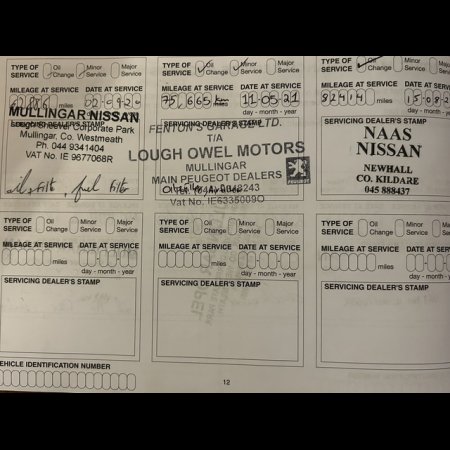 TYPE OF SERVICE Oil Change Minor Service Major Service
MILEAGE AT SERVICE DATE AT SERVICE
miles 02 09 20
MULLINGAR NISSAN
Lough Sheever Corporate Park
Mullingar, Co. Westmeath
Ph. 044 9341404
VAT No. IE 9677068R
oil filter, fuel filter
TYPE OF SERVICE Oil Change Minor Service Major Service
MILEAGE AT SERVICE DATE AT SERVICE
75,665 km 11 05 21
FENTON'S GARAGE LTD.
T/A
LOUGH OWEL MOTORS
MULLINGAR
MAIN PEUGEOT DEALERS
PEUGEOT
Vat No. IE6335009O
TYPE OF SERVICE Oil Change Minor Service Major Service
MILEAGE AT SERVICE DATE AT SERVICE
82414 miles
day - month - year
SERVICING DEALER'S STAMP
NAAS
NISSAN
NEWHALL
CO. KILDARE
045 888437
TYPE OF SERVICE Oil Change Minor Service Major Service
MILEAGE AT SERVICE DATE AT SERVICE
miles
day - month - year
SERVICING DEALER'S STAMP
TYPE OF SERVICE Oil Change Minor Service Major Service
MILEAGE AT SERVICE DATE AT SERVICE
miles
day - month - year
SERVICING DEALER'S STAMP
TYPE OF SERVICE Oil Change Minor Service Major Service
MILEAGE AT SERVICE DATE AT SERVICE
miles
day - month - year
SERVICING DEALER'S STAMP
VEHICLE IDENTIFICATION NUMBER
12